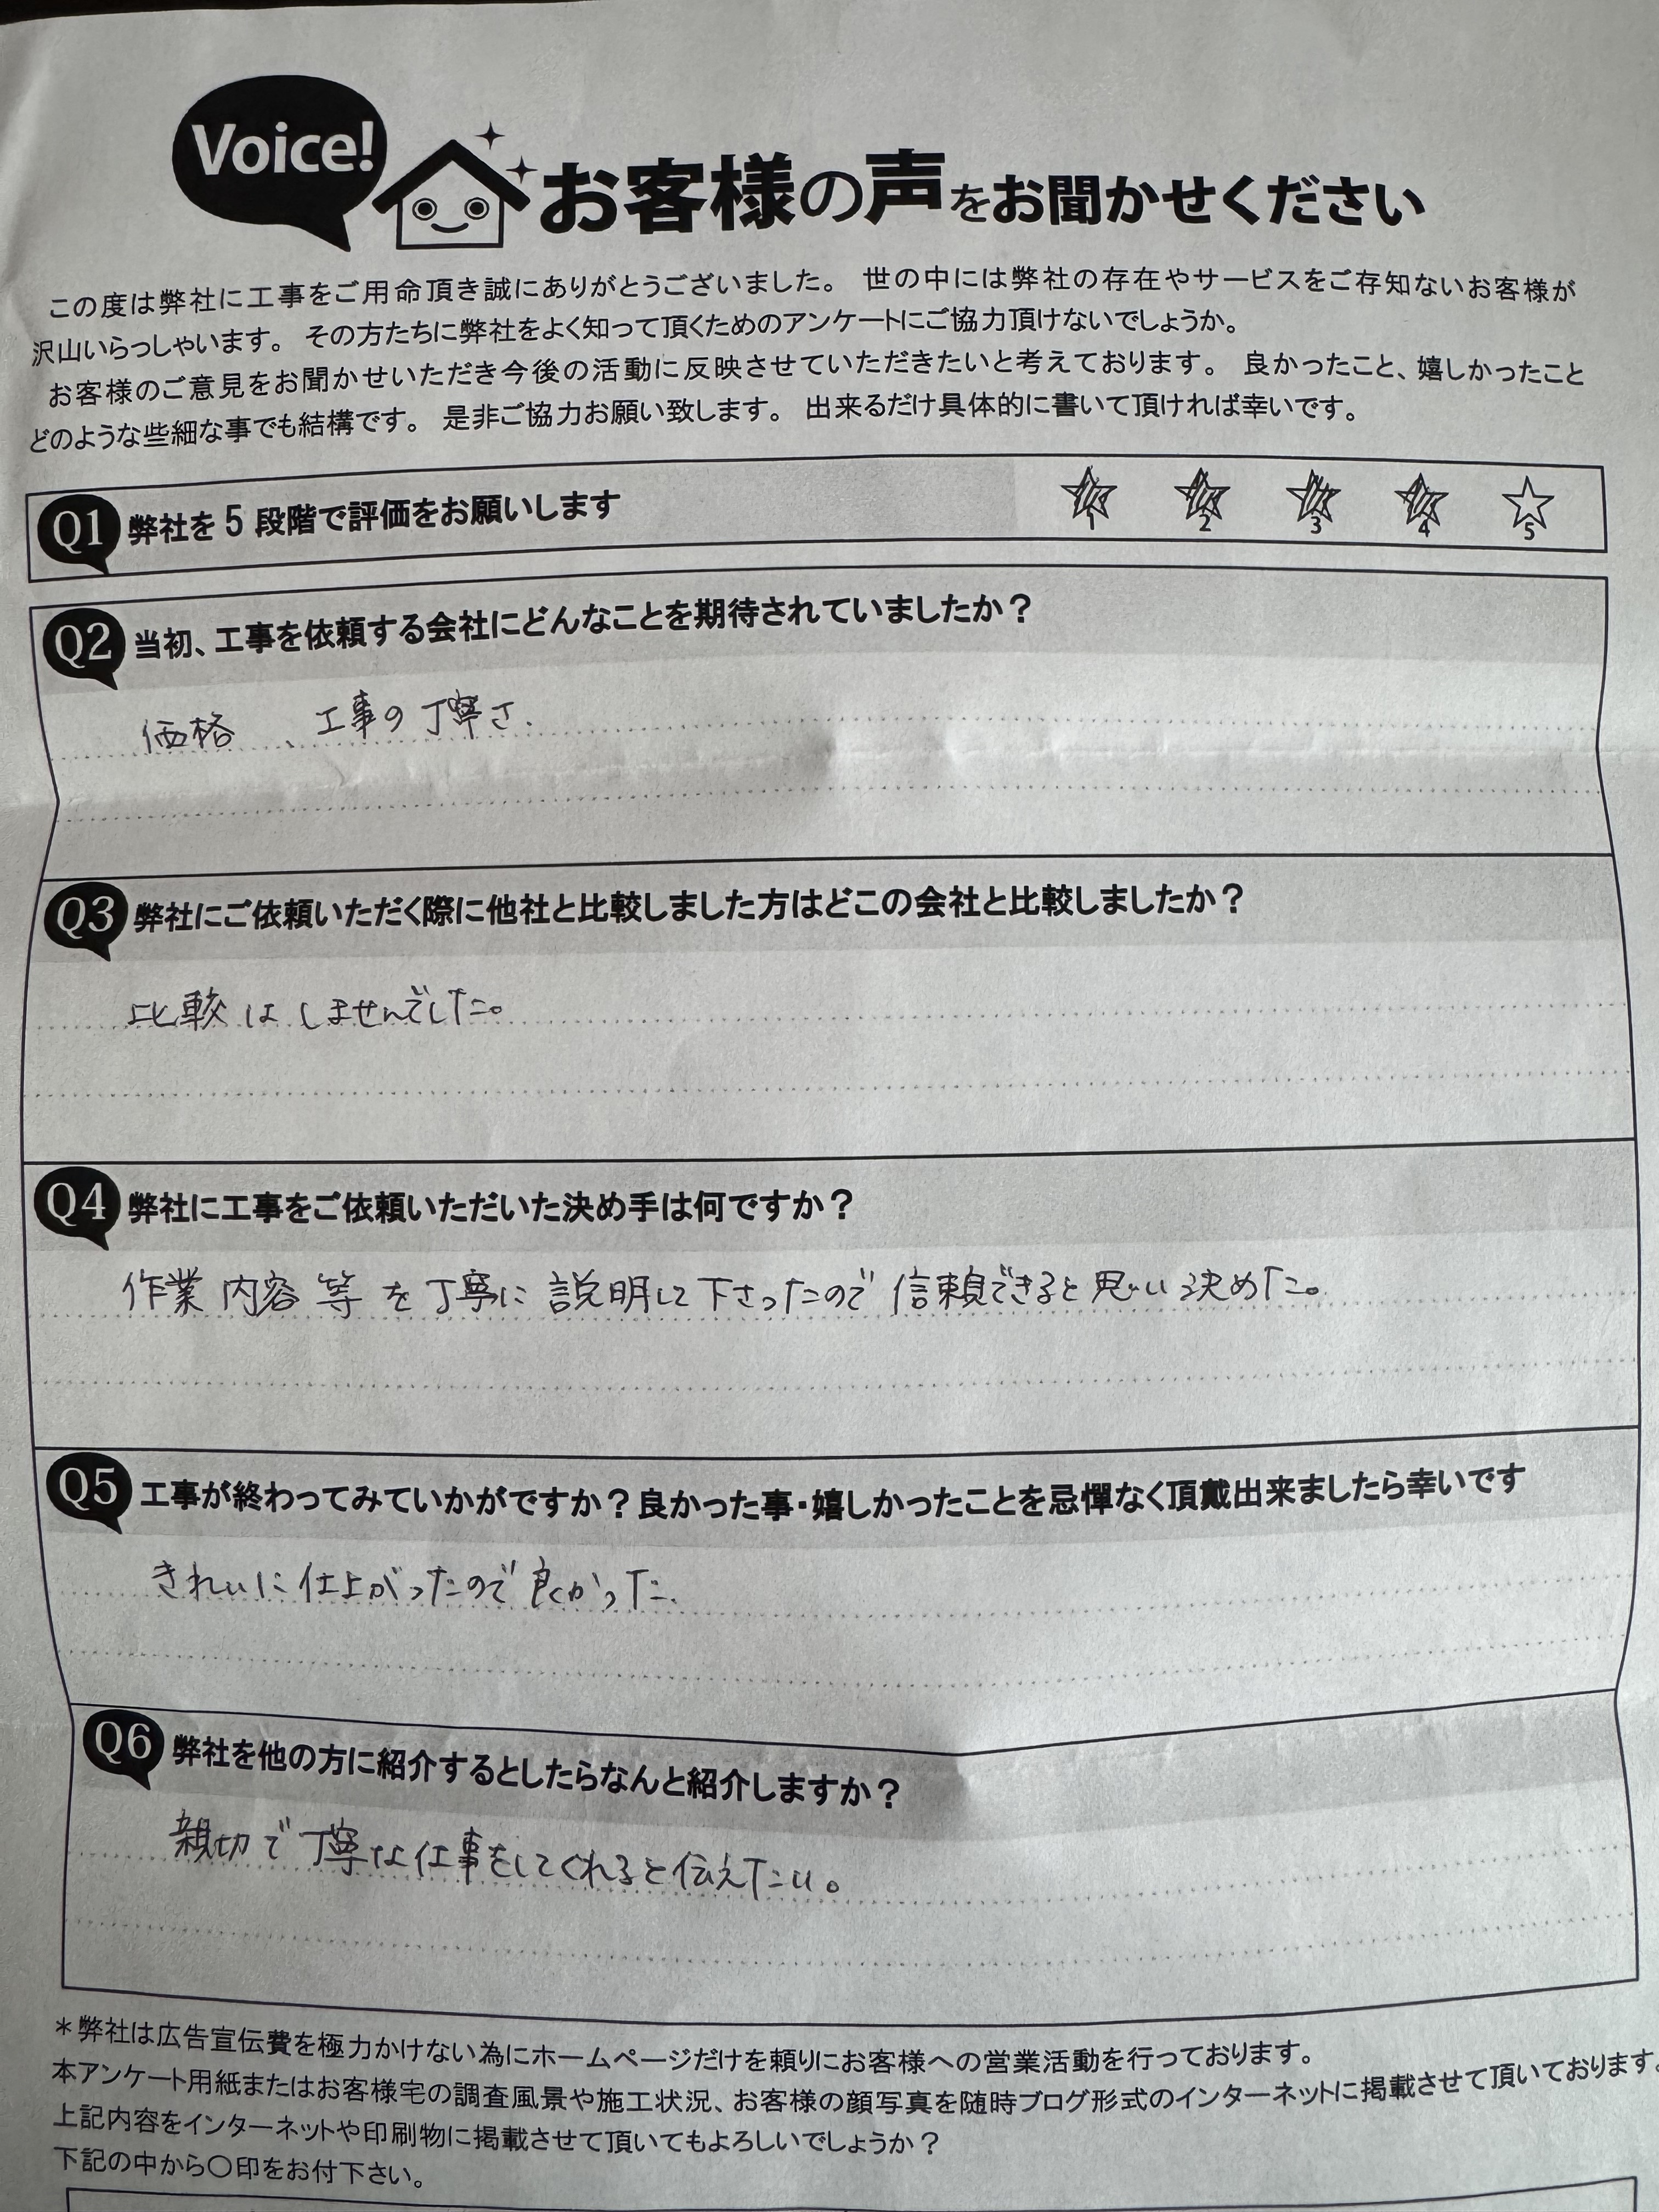 Voice!
お客様の声をお聞かせください
この度は弊社に工事をご用命頂き誠にありがとうございました。 世の中には弊社の存在やサービスをご存知ないお客様が
沢山いらっしゃいます。 その方たちに弊社をよく知って頂くためのアンケートにご協力頂けないでしょうか。
お客様のご意見をお聞かせいただき今後の活動に反映させていただきたいと考えております。 良かったこと、嬉しかったこと
どのような些細な事でも結構です。 是非ご協力お願い致します。 出来るだけ具体的に書いて頂ければ幸いです。
Q1 弊社を5段階で評価をお願いします 1 2 3 4 5
Q2 当初、工事を依頼する会社にどんなことを期待されていましたか？
価格、工事の丁寧さ.
Q3 弊社にご依頼いただく際に他社と比較しました方はどこの会社と比較しましたか？
比較はしませんでした。
Q4 弊社に工事をご依頼いただいた決め手は何ですか？
作業内容等を丁寧に説明して下さったので信頼できると思い決めた。
Q5 工事が終わってみていかがですか？良かった事・嬉しかったことを忌憚なく頂戴出来ましたら幸いです
きれいに仕上がったので良かった.
Q6 弊社を他の方に紹介するとしたらなんと紹介しますか？
親切で丁寧な仕事をしてくれると伝えたい。
＊弊社は広告宣伝費を極力かけない為にホームページだけを頼りにお客様への営業活動を行っております。
本アンケート用紙またはお客様宅の調査風景や施工状況、お客様の顔写真を随時ブログ形式のインターネットに掲載させて頂いております。
上記内容をインターネットや印刷物に掲載させて頂いてもよろしいでしょうか？
下記の中から〇印をお付下さい。